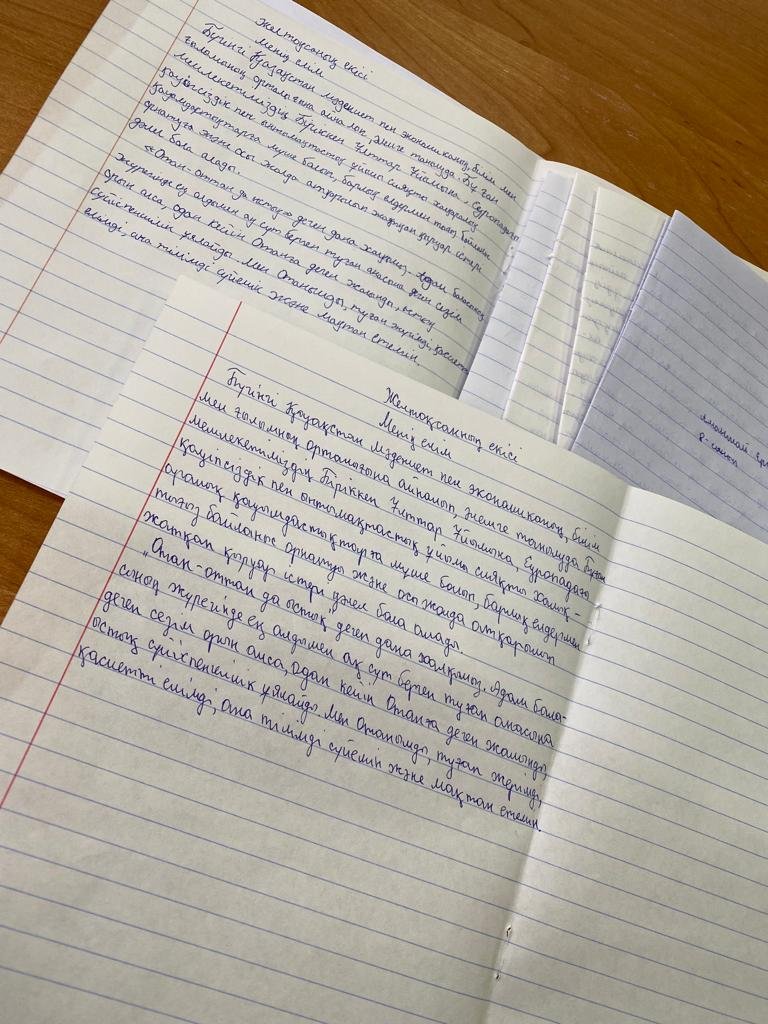 Желтоқсаның екісі
Менің елім
Бүгінгі Қазақстан мәдениет пен экономиканың, білім мен
ғылымның орталығына айналып, әлемге танылуда. Бұған
мемлекетіміздің Біріккен Ұлттар Ұйымына, Еуропадағы
қауіпсіздік пен ынтымақтастық ұйымы сияқты халықаралық
қауымдастықтарға мүше болып, барлық елдермен тығыз байланыс
орнатуға және осы жолда атқарылып жатқан қыруар істері
дәлел бола алады.
«Отан-оттан да ыстық» деген дана халқымыз. Адам баласының
жүрегінде ең алдымен ақ сүт берген туған анасына деген сезім
орын алса, одан кейін Отанға деген жалынды, ыстық
сүйіспеншілік ұялайды. Мен Отанымды, туған жерімді, қасиетті
елімді, ана тілімді сүйемін және мақтан етемін.
Аманжол
8-сынып
Желтоқсанның екісі
Менің елім
Бүгінгі Қыазақстан мәдениет пен экономиканың, білім
мен ғылымның орталығына айналып, әлемге танылуда. Бұған
мемлекетіміздің Біріккен Ұлттар Ұйымына, Еуропадағы
қауіпсіздік пен ынтымақтастық ұйымы сияқты халық-
аралық қауымдастықтарға мүше болып, барлық елдермен
тығыз байланыс орнатуы және осы жолда атқарылып
жатқан қыруар істері дәлел бола алады.
„Отан-оттан да ыстық" деген дана халқымыз. Адам бала-
сының жүрегінде ең алдымен ақ сүт берген туған анасына
деген сезім орын алса, одан кейін Отанға деген жалынды,
ыстық сүйіспеншілік ұялайды. Мен Отанымды, туған жерімді,
қасиетті елімді, ана тілімді сүйемін және мақтан етемін.